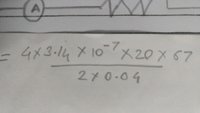 A
= 4×3.14 × 10⁻⁷ × 20 × 57
2×0.04